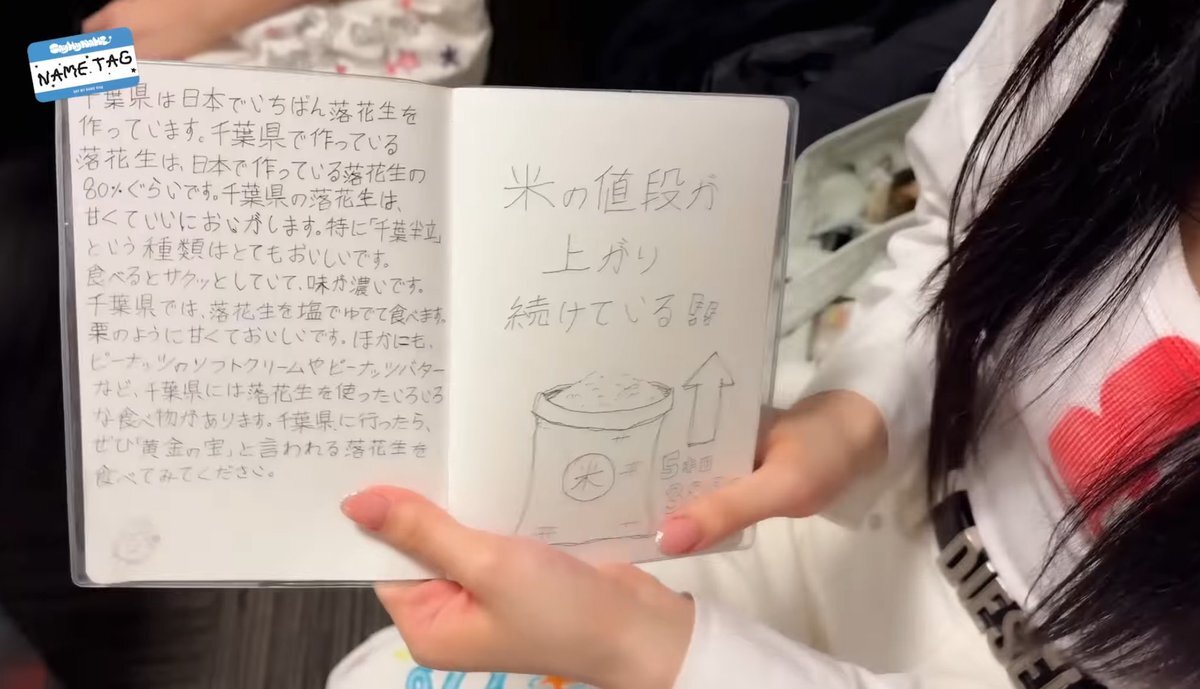 SayMyName
NAME TAG
SAY MY NAME TAG
千葉県は日本でいちばん落花生を
作っています。千葉県で作っている
落花生は、日本で作っている落花生の
80%ぐらいです。千葉県の落花生は、
甘くていいにおいがします。特に「千葉半立」
という種類はとてもおいしいです。
食べるとサクッとしていて、味が濃いです。
千葉県では、落花生を塩でゆでて食べます。
栗のように甘くておいしいです。ほかにも、
ピーナッツのソフトクリームやピーナッツバター
など、千葉県には落花生を使ったいろいろ
な食べ物があります。千葉県に行ったら、
ぜひ「黄金の宝」と言われる落花生を
食べてみてください。
米の値段が
上がり
続けている!!
米
DIESEL